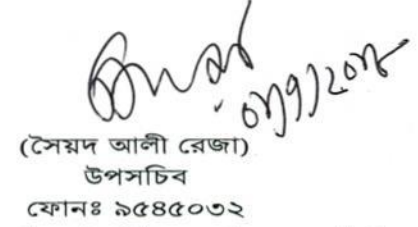 (সৈয়দ আলী রেজা)
উপসচিব
ফোনঃ ৯৫৪৫০৩২